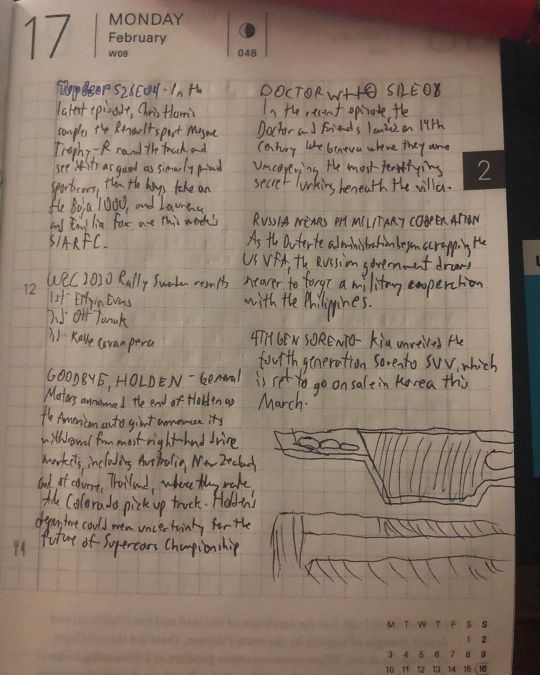 17
MONDAY
February
W08
048
TopGear S28E04 - In the
latest episode, Chris Harris
samples the Renaultsport Megane
Trophy-R round the track and
see if it's as good as similarly priced
sportscars, then the boys take on
the Baja 1000, and Laurence
and Emilia Fox are this week's
SIARFC.
12
WRC 2020 Rally Sweden results
1st - Elfyn Evans
2nd - Ott Tanak
3rd - Kalle Rovanpera
GOODBYE, HOLDEN - General
Motors announced the end of Holden as
the American auto giant announce its
withdrawal from most right-hand drive
markets, including Australia, New Zealand,
and of course, Thailand, where they make
the Colorado pick up truck. Holden's
departure could mean uncertainty for the
future of Supercars Championship
DOCTOR WHO S12E08
In the recent episode, the
Doctor and friends landed on 19th
century Lake Geneva where they are
uncovering the most terrifying
secret lurking beneath the villa.
2
RUSSIA NEARS PH MILITARY COOPERATION
As the Duterte administration began scrapping the
US VFA, the Russian government draws
nearer to forge a military cooperation
with the Philippines.
4TH GEN SORENTO - Kia unveiled the
fourth generation Sorento SUV, which
is set to go on sale in Korea this
March.
M T W T F S S
1 2
3 4 5 6 7 8 9
10 11 12 13 14 15 16